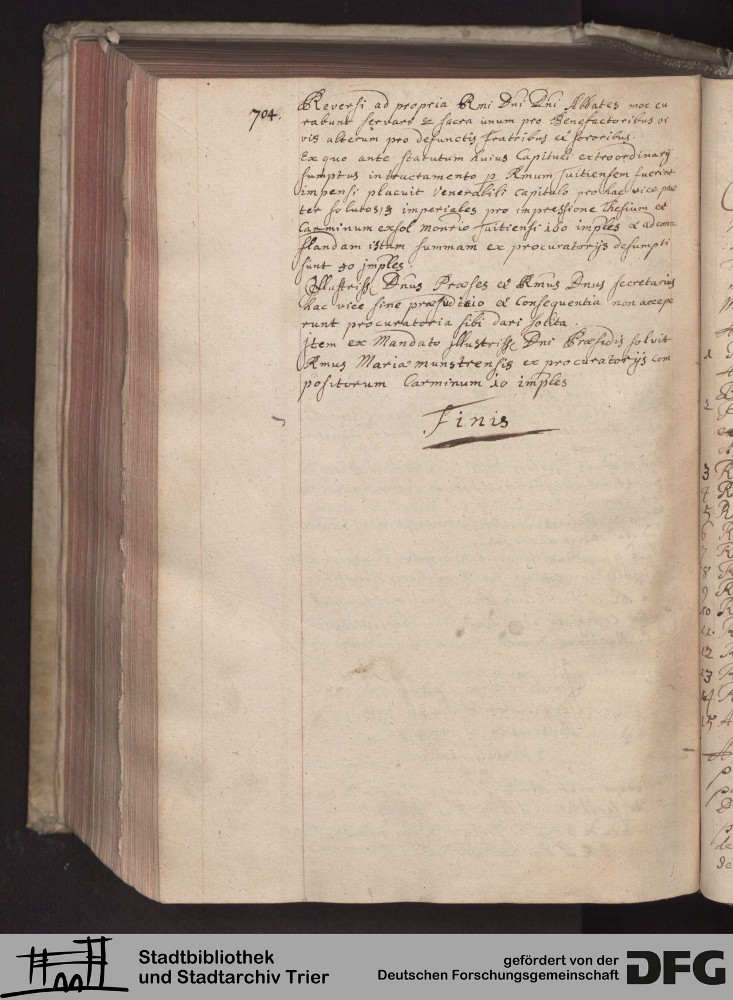 704.
Reversi ad propria Rmi Dni Dni Abbates mox cu
rabunt servari 2 sacra unum pro Benefactoribus vi
vis alterum pro defunctis fratribus et sororibus.
Ex quo ante statutum huius Capituli extraordinarij
sumptus in tractamento p Rmum Tuitiensem fuerint
impensi placuit Venerabili Capitulo pro hac vice præ
ter solutos imperiales pro impressione Thesium et
Carminum exsol monrio Tuitiensi 160 imples & ad con=
flandam istam summam ex procuratorijs desumpti
sunt 90 imples.
Illustriss Dnus Præses et Rmus Dnus secretarius
hac vice sine præjudicio et Consequentia non accepe
runt procuratoria sibi dari solita.
Item ex Mandato illustriss Dni Præsidis solvit
Rmus Mariæmunstrensis ex procuratorijs Com
positorum Carminum 10 imples
Finis
1
2
3 R
4 R
5 R
6
7 R
8 R
9 R
10 R
11. R
12 R
13 R
14 R
15 A
Stadtbibliothek
und Stadtarchiv Trier
gefördert von der
Deutschen Forschungsgemeinschaft
DFG